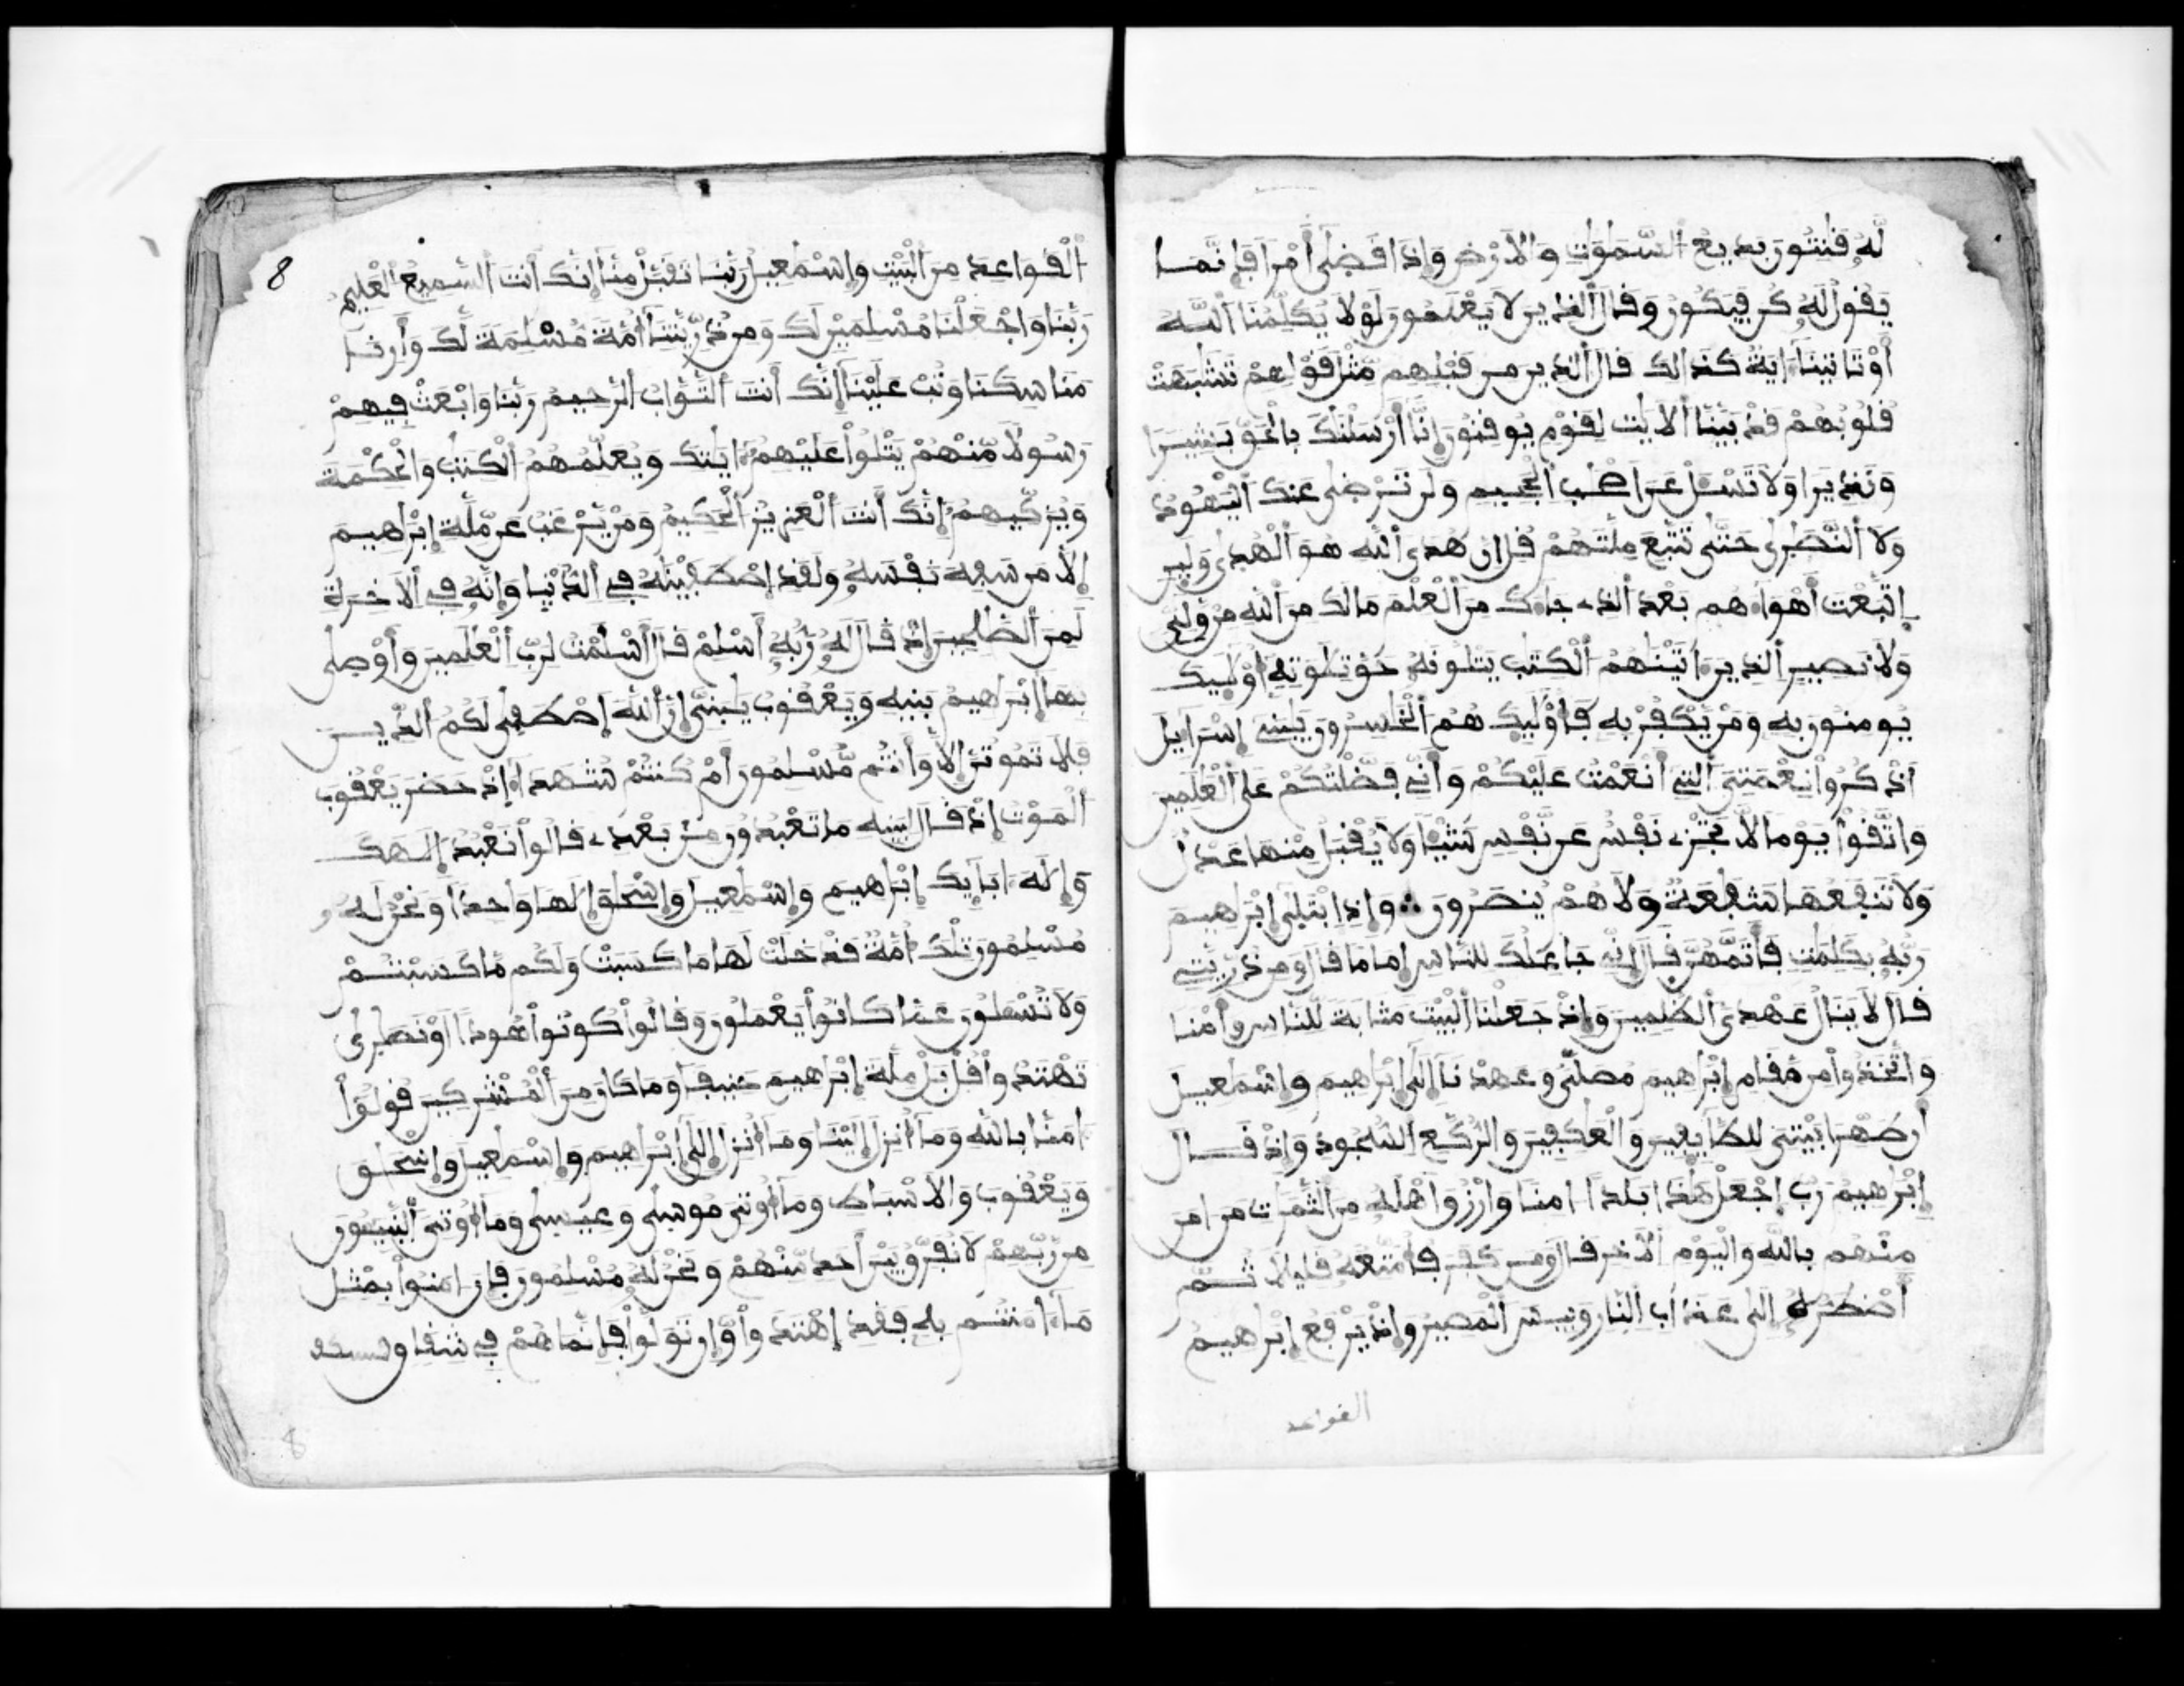 لَّهُۥ قَٰنِتُونَ بَدِيعُ السَّمَٰوَٰتِ وَالَارْضِ وَإِذَا قَضَىٰ أَمْرًا فَإِنَّمَا
يَقُولُ لَهُۥ كُن فَيَكُونُ وَقَالَ الذِينَ لَا يَعْلَمُونَ لَوْلَا يُكَلِّمُنَا اللَّهُ
أَوْ تَاتِينَا ءَايَةٌ كَذَالِكَ قَالَ الذِينَ مِن قَبْلِهِم مِّثْلَ قَوْلِهِمْ تَشَٰبَهَتْ
قُلُوبُهُمْ قَدْ بَيَّنَّا الَايَٰتِ لِقَوْمٍ يُوقِنُونَ إِنَّا أَرْسَلْنَٰكَ بِالْحَقِّ بَشِيرًا
وَنَذِيرًا وَلَا تَسْـَٔلْ عَنَ اَصْحَٰبِ الْجَحِيمِ وَلَن تَرْضَىٰ عَنكَ الْيَهُودُ
وَلَا النَّصَٰرَىٰ حَتَّىٰ تَتَّبِعَ مِلَّتَهُمْ قُلِ انَّ هُدَى اللَّهِ هُوَ الْهُدَىٰ وَلَئِنِ
إِتَّبَعْتَ أَهْوَاءَهُم بَعْدَ الذِے جَاءَكَ مِنَ الْعِلْمِ مَا لَكَ مِنَ اللَّهِ مِنْ وَّلِيٍّ
وَلَا نَصِيرٍ الذِينَ ءَاتَيْنَٰهُمُ الْكِتَٰبَ يَتْلُونَهُۥ حَقَّ تِلَاوَتِهِۦ أُوْلَٰئِكَ
يُومِنُونَ بِهِ وَمَنْ يَّكْفُرْ بِهِ فَأُوْلَٰئِكَ هُمُ الْخَٰسِرُونَ يَٰبَنِے إِسْرَاءِيلَ
اَذْكُرُواْ نِعْمَتِيَ التِے أَنْعَمْتُ عَلَيْكُمْ وَأَنِّے فَضَّلْتُكُمْ عَلَى الْعَٰلَمِينَ
وَاتَّقُواْ يَوْمًا لَّا تَجْزِے نَفْسٌ عَن نَّفْسٍ شَيْئًا وَلَا يُقْبَلُ مِنْهَا عَدْلٌ
وَلَا تَنفَعُهَا شَفَٰعَةٌ وَلَا هُمْ يُنصَرُونَ ∴ وَإِذِ ابْتَلَىٰ إِبْرَاهِيمَ
رَبُّهُۥ بِكَلِمَٰتٍ فَأَتَمَّهُنَّ قَالَ إِنِّے جَاعِلُكَ لِلنَّاسِ إِمَامًا قَالَ وَمِن ذُرِّيَّتِے
قَالَ لَا يَنَالُ عَهْدِي الظَّٰلِمِينَ وَإِذْ جَعَلْنَا الْبَيْتَ مَثَابَةً لِّلنَّاسِ وَأَمْنًا
وَاتَّخَذُواْ مِن مَّقَامِ إِبْرَاهِيمَ مُصَلًّى وَعَهِدْنَا إِلَىٰ إِبْرَاهِيمَ وَإِسْمَٰعِيلَ
أَن طَهِّرَا بَيْتِيَ لِلطَّائِفِينَ وَالْعَٰكِفِينَ وَالرُّكَّعِ السُّجُودِ وَإِذْ قَالَ
إِبْرَاهِيمُ رَبِّ إِجْعَلْ هَٰذَا بَلَدًا ءَامِنًا وَارْزُقَ اَهْلَهُۥ مِنَ الثَّمَرَٰتِ مَنَ امَنَ
مِنْهُم بِاللَّهِ وَالْيَوْمِ الَاخِرِ قَالَ وَمَن كَفَرَ فَأُمَتِّعُهُۥ قَلِيلًا ثُمَّ
أَضْطَرُّهُۥ إِلَىٰ عَذَابِ النَّارِ وَبِيسَ الْمَصِيرُ وَإِذْ يَرْفَعُ إِبْرَاهِيمُ
القواعد
8
الْقَوَاعِدَ مِنَ الْبَيْتِ وَإِسْمَٰعِيلُ رَبَّنَا تَقَبَّلْ مِنَّا إِنَّكَ أَنتَ السَّمِيعُ الْعَلِيمُ
رَبَّنَا وَاجْعَلْنَا مُسْلِمَيْنِ لَكَ وَمِن ذُرِّيَّتِنَا أُمَّةً مُّسْلِمَةً لَّكَ وَأَرِنَا
مَنَاسِكَنَا وَتُبْ عَلَيْنَا إِنَّكَ أَنتَ التَّوَّابُ الرَّحِيمُ رَبَّنَا وَابْعَثْ فِيهِمْ
رَسُولًا مِّنْهُمْ يَتْلُواْ عَلَيْهِمُۥ ءَايَٰتِكَ وَيُعَلِّمُهُمُ الْكِتَٰبَ وَالْحِكْمَةَ
وَيُزَكِّيهِمُۥ إِنَّكَ أَنتَ الْعَزِيزُ الْحَكِيمُ وَمَنْ يَّرْغَبُ عَن مِّلَّةِ إِبْرَاهِيمَ
إِلَّا مَن سَفِهَ نَفْسَهُۥ وَلَقَدِ إِصْطَفَيْنَٰهُ فِے الدُّنْيَا وَإِنَّهُۥ فِے الَاخِرَةِ
لَمِنَ الصَّٰلِحِينَ إِذْ قَالَ لَهُۥ رَبُّهُۥ أَسْلِمْ قَالَ أَسْلَمْتُ لِرَبِّ الْعَٰلَمِينَ وَأَوْصَىٰ
بِهَا إِبْرَاهِيمُ بَنِيهِ وَيَعْقُوبُ يَٰبَنِيَّ إِنَّ اللَّهَ إَصْطَفَىٰ لَكُمُ الدِّينَ
فَلَا تَمُوتُنَّ إِلَّا وَأَنتُم مُّسْلِمُونَ أَمْ كُنتُمْ شُهَدَاءَ إِذْ حَضَرَ يَعْقُوبَ
الْمَوْتُ إِذْ قَالَ لِبَنِيهِ مَا تَعْبُدُونَ مِنۢ بَعْدِے قَالُواْ نَعْبُدُ إِلَٰهَكَ
وَإِلَٰهَ ءَابَائِكَ إِبْرَاهِيمَ وَإِسْمَٰعِيلَ وَإِسْحَٰقَ إِلَٰهًا وَٰحِدًا وَنَحْنُ لَهُۥ
مُسْلِمُونَ تِلْكَ أُمَّةٌ قَدْ خَلَتْ لَهَا مَا كَسَبَتْ وَلَكُم مَّا كَسَبْتُمْ
وَلَا تُسْـَٔلُونَ عَمَّا كَانُواْ يَعْمَلُونَ وَقَالُواْ كُونُواْ هُودًا أَوْ نَصَٰرَىٰ
تَهْتَدُواْ قُلْ بَلْ مِلَّةَ إِبْرَاهِيمَ حَنِيفًا وَمَا كَانَ مِنَ الْمُشْرِكِينَ قُولُواْ
ءَامَنَّا بِاللَّهِ وَمَا أُنزِلَ إِلَيْنَا وَمَا أُنزِلَ إِلَىٰ إِبْرَاهِيمَ وَإِسْمَٰعِيلَ وَإِسْحَٰقَ
وَيَعْقُوبَ وَالَاسْبَاطِ وَمَا أُوتِيَ مُوسَىٰ وَعِيسَىٰ وَمَا أُوتِيَ النَّبِيـُٔونَ
مِن رَّبِّهِمْ لَا نُفَرِّقُ بَيْنَ أَحَدٍ مِّنْهُمْ وَنَحْنُ لَهُۥ مُسْلِمُونَ فَإِنَ امَنُواْ بِمِثْلِ
مَا ءَامَنتُم بِهِ فَقَدِ إِهْتَدَواْ وَّإِن تَوَلَّوْاْ فَإِنَّمَا هُمْ فِے شِقَاقٍ
8